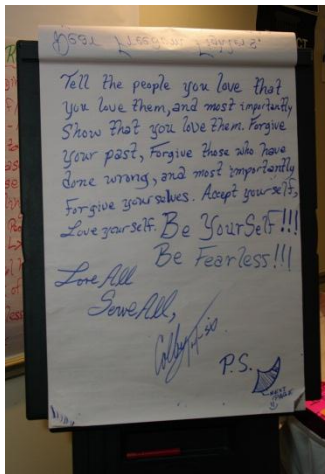 Tell the people you love that
you love them, and most importantly
Show that you love them. Forgive
your past, Forgive those who have
done wrong, and most importantly
Forgive yourselves. Accept yourself,
Love yourself. Be YourSelf!!!
Be Fearless!!!
Love All
Serve All,
P.S.